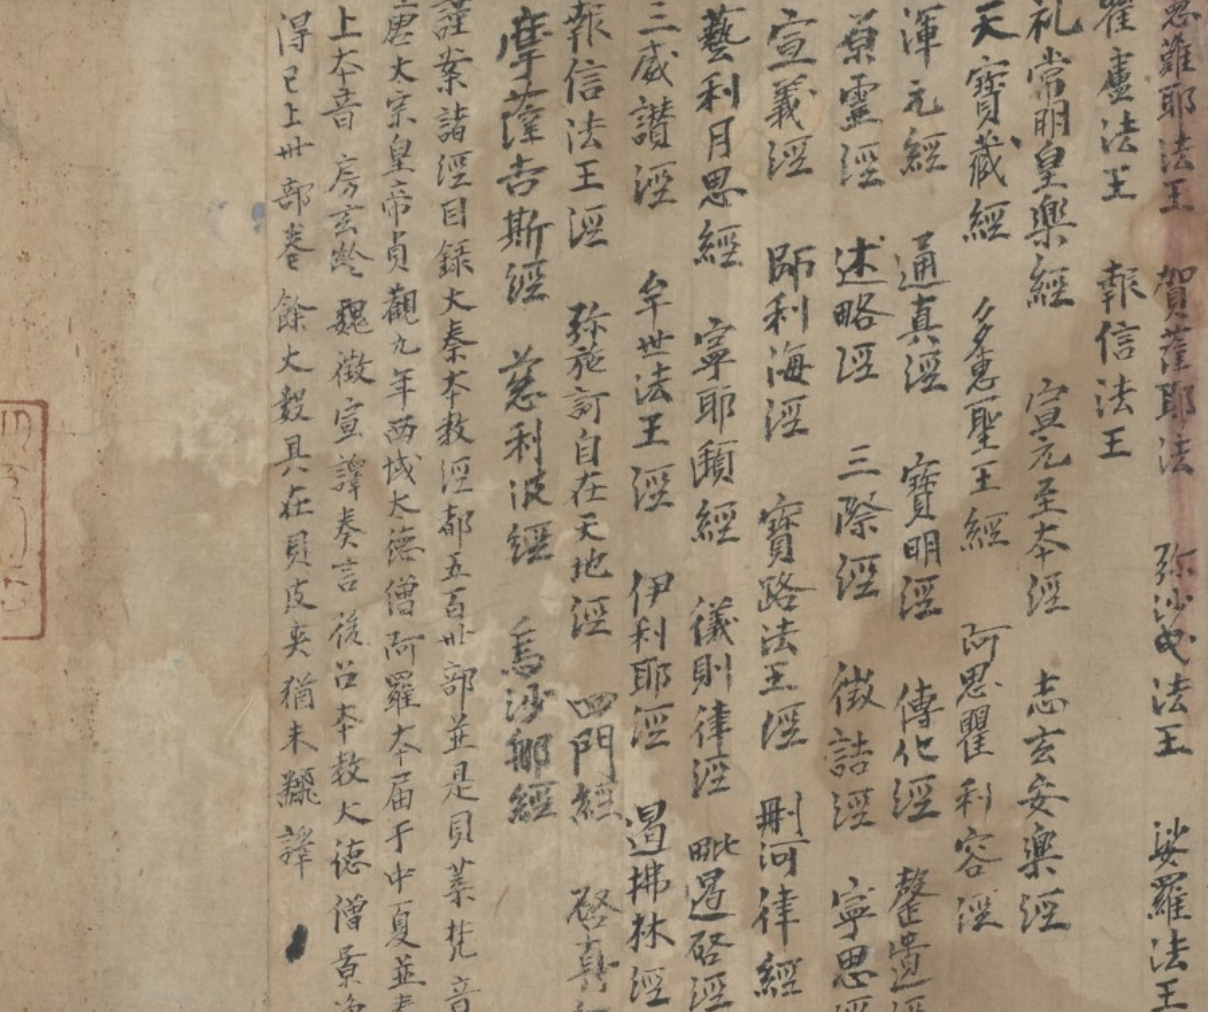 㤙難耶法王 賀薩耶法 弥沙曳法王 娑羅法王
瞿盧法王 報信法王
礼常明皇樂經 宣元至夲經 志玄安樂經
天寶藏經 多惠聖王經 阿思瞿利容經
渾元經 通真經 寶明經 傳化經 罄遺經
原靈經 述略經 三際經 徵詰經 寧思經
宣義經 師利海經 寶路法王經 刪河律經
藝利月思經 寧耶頤經 儀則律經 毗遏啓經
三威讚經 牟世法王經 伊利耶經 遏拂林經
報信法王經 弥施訶自在天地經 四門經 啓真
摩薩吉斯經 慈利波經 烏沙郍經
謹案諸經目録大秦夲教經都五百卅部並是貝葉梵音
唐太宗皇帝貞觀九年西域太德僧阿羅夲届于中夏並奏
上夲音 房玄齡 魏徵宣譯奏言 後召夲教大德僧景浄
得已上卅部卷 餘大數具在貝皮夾猶未飜譯